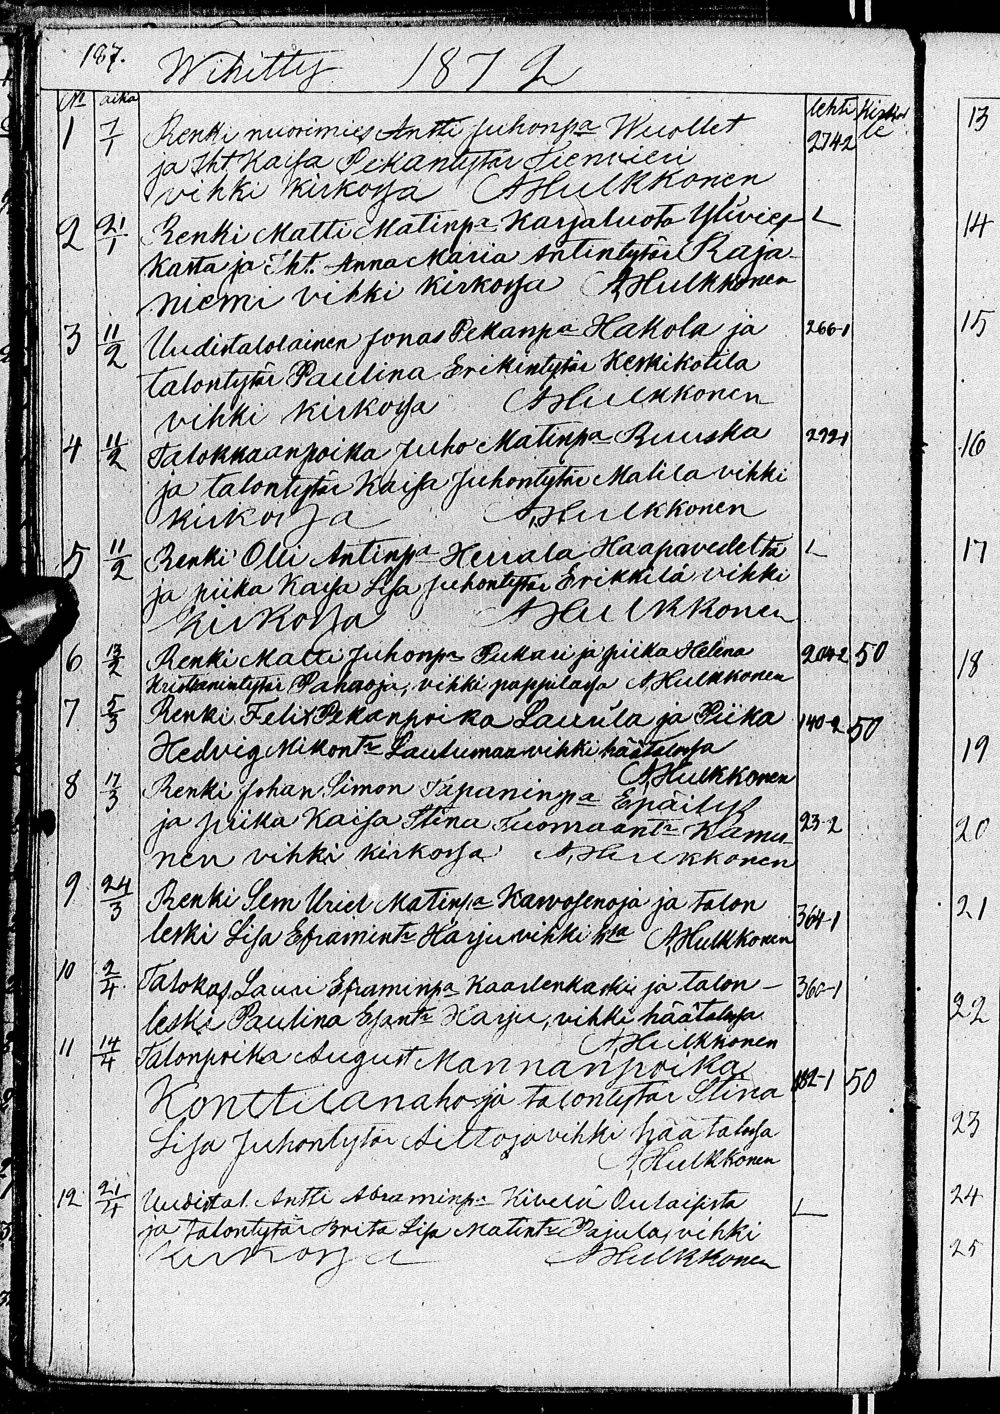 187. Wihitty 1872
No aika lehti Kirkol
le
1 7/1 Renki nuorimies Antti Juhonpa Wuollet 274-2
ja Iht. Kaisa Pekantytär Tienvieri
vihki kirkossa AHulkkonen
2 21/1 Renki Matti Matinpa Karjaluoto Ylivies
Kasta ja Iht. Anna Maria Antintytär Raja-
niemi vihki kirkossa AHulkkonen
3 11/2 Uudistalolainen Jonas Pekanpa Hakola ja 266-1
talontytär Paulina Erikintytär Keskikotila
vihki kirkossa AHulkkonen
4 11/2 Talokkaanpoika Juho Matinpa Ruuska 292-1
ja talontytär Kaisa Juhontytär Matila vihki
kirkossa AHulkkonen
5 11/2 Renki Olli Antinpa Herrala Haapavedeltä
ja piika Kaisa Lisa Juhontytär Erikkilä vihki
kirkossa AHulkkonen
6 13/2 Renki Matti Juhonpa Pukari ja piika Helena 204-2 50
Kristianintytär Pahaoja, vihki pappilassa AHulkkonen
7 5/3 Renki Felix Pekanpoika Laurula ja Piika 140-2 50
Hedvig Mikontr Lautumaa vihki häätalossa
AHulkkonen
8 17/3 Renki Johan Simon Tapaninpa Epäilys
ja piika Kaisa Stina Tuomaantr Kamu- 23-2
nen vihki kirkossa AHulkkonen
9 24/3 Renki Sem Uriel Matinpa Karvosenoja ja talon
leski Lisa Eframintr Harju vihki AHulkkonen 364-1
10 2/4 Talokas Lauri Eframinpa Kaarlenkaski ja talon- 360-1
leski Paulina Harju, vihki häätalossa
AHulkkonen
11 14/4 Talonpoika August Mannanpoika
Konttilanaho ja talontytär Stina 182-1 50
Lisa Juhontytär Aittoja vihki häätalossa
AHulkkonen
12 21/4 Uudistal. Antti Abraminpa Kivelä Oulaisista
ja talontytär Brita Lisa Matintr Pajula, vihki
kirkossa AHulkkonen
13
14
15
16
17
18
19
20
21
22
23
24
25